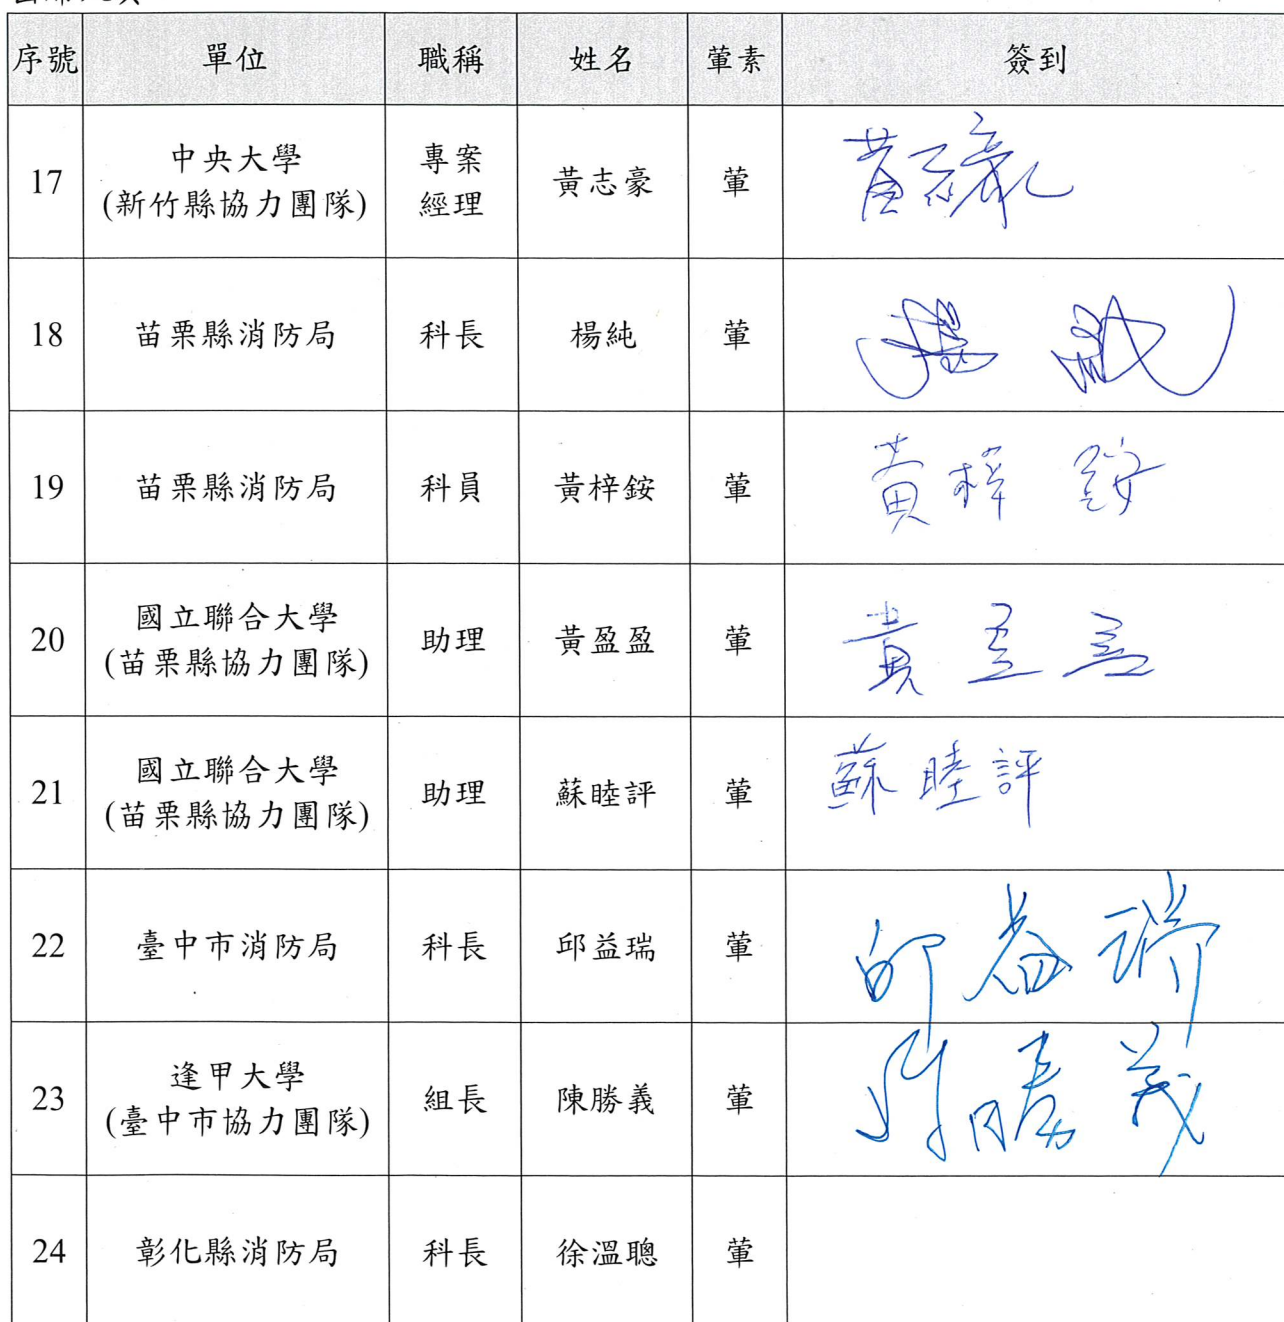 序號 單位 職稱 姓名 葷素 簽到
17 中央大學 (新竹縣協力團隊) 專案 經理 黃志豪 葷 黃志豪
18 苗栗縣消防局 科長 楊純 葷 楊純
19 苗栗縣消防局 科員 黃梓銨 葷 黃梓銨
20 國立聯合大學 (苗栗縣協力團隊) 助理 黃盈盈 葷 黃盈盈
21 國立聯合大學 (苗栗縣協力團隊) 助理 蘇睦評 葷 蘇睦評
22 臺中市消防局 科長 邱益瑞 葷 邱益瑞
23 逢甲大學 (臺中市協力團隊) 組長 陳勝義 葷 陳勝義
24 彰化縣消防局 科長 徐溫聰 葷